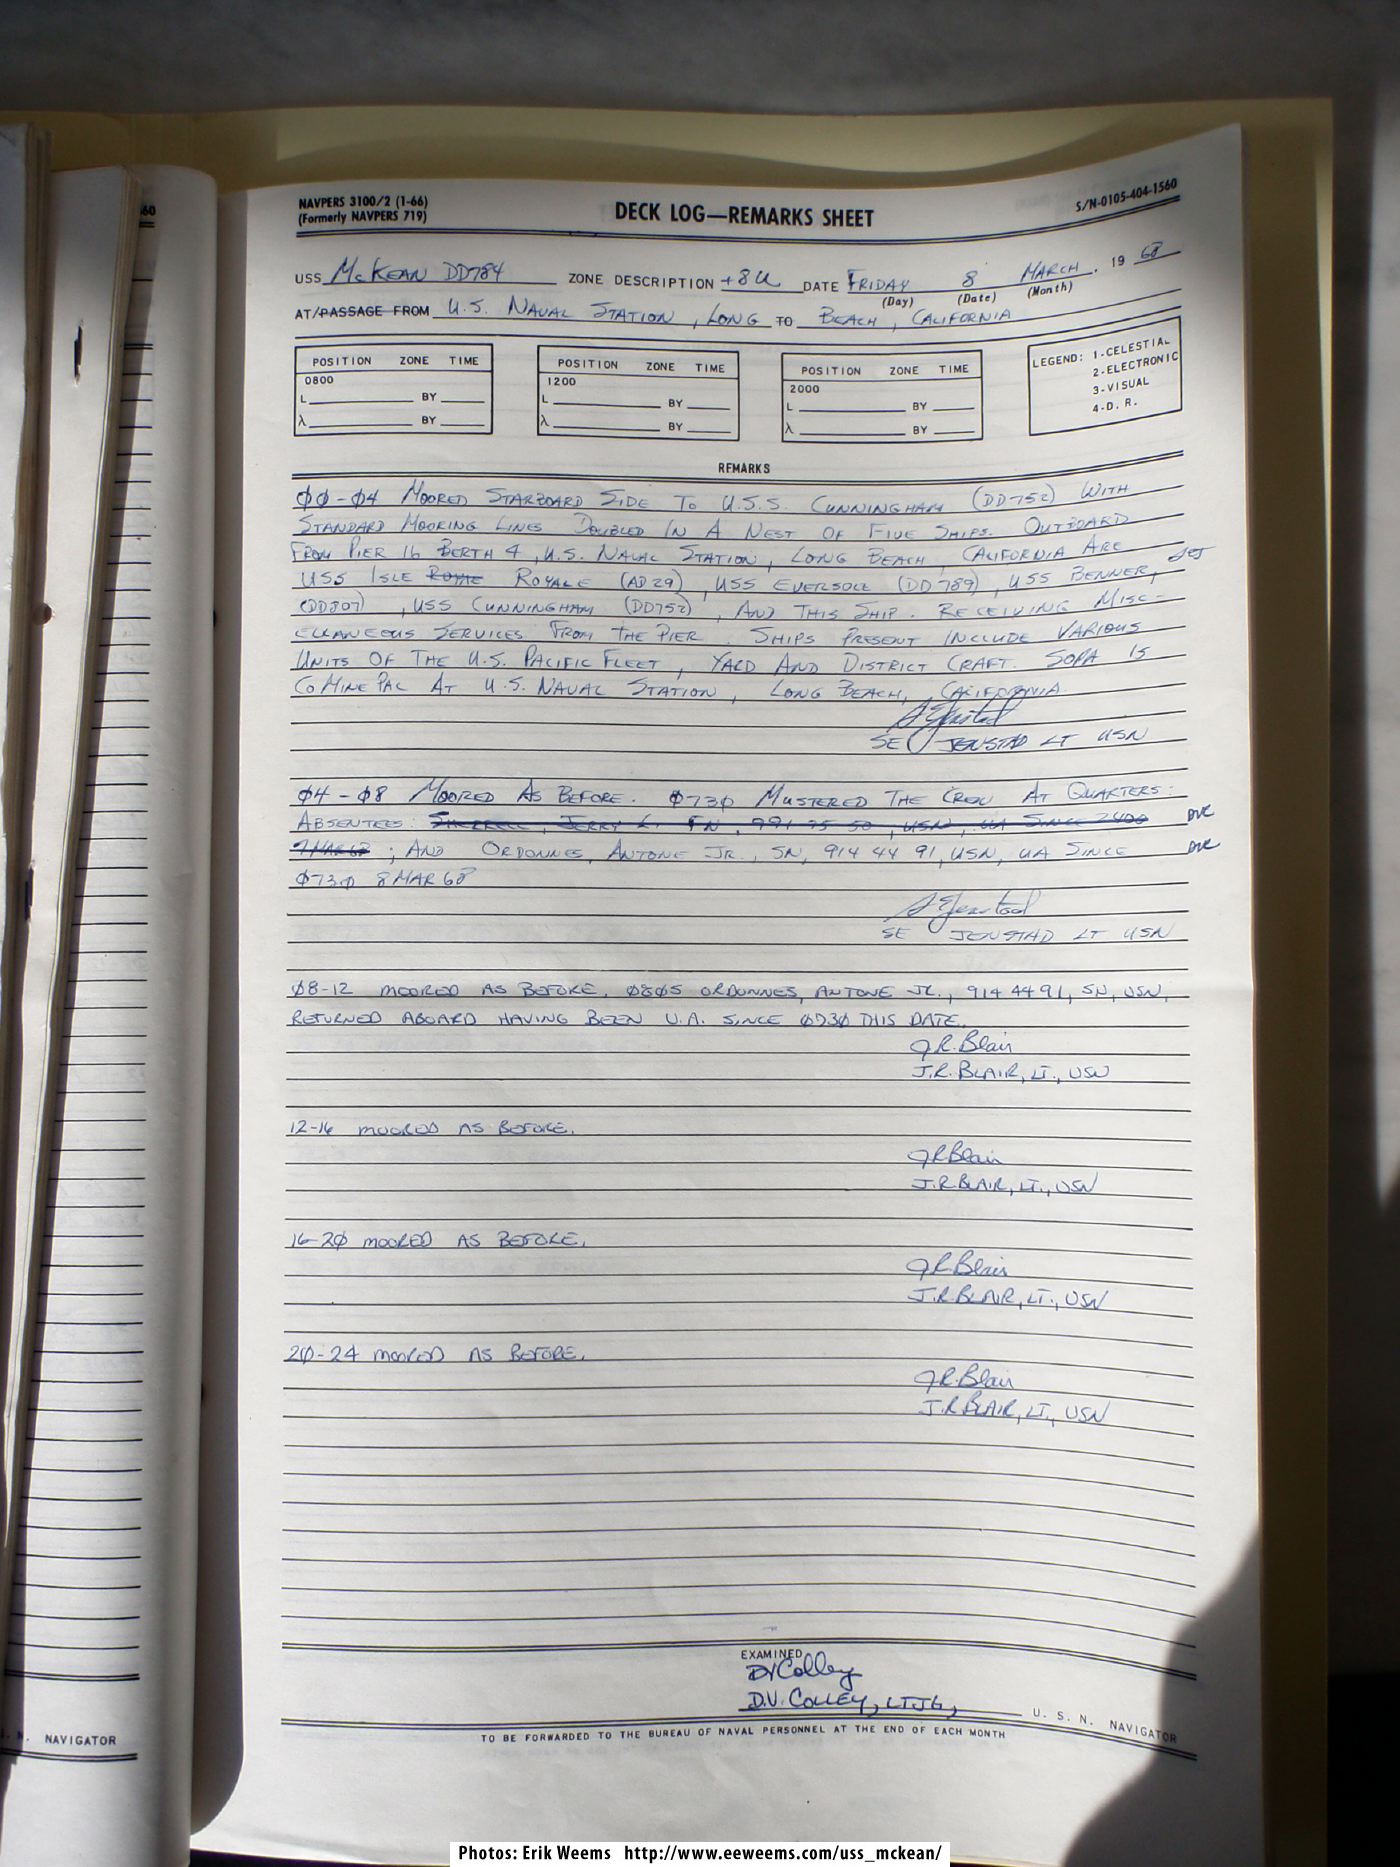 60
NAVPERS 3100/2 (1-66)
(Formerly NAVPERS 719)
DECK LOG—REMARKS SHEET
S/N-0105-404-1560
USS McKEAN DD784 ZONE DESCRIPTION +8U DATE FRIDAY 8 MARCH, 19 68
(Day) (Date) (Month)
AT/PASSAGE FROM U.S. NAVAL STATION, LONG TO BEACH, CALIFORNIA
POSITION ZONE TIME
0800
L BY
λ BY
POSITION ZONE TIME
1200
L BY
λ BY
POSITION ZONE TIME
2000
L BY
λ BY
LEGEND: 1-CELESTIAL
2-ELECTRONIC
3-VISUAL
4-D. R.
REMARKS
00-04 MOORED STARBOARD SIDE TO U.S.S. CUNNINGHAM (DD752) WITH
STANDARD MOORING LINES DOUBLED IN A NEST OF FIVE SHIPS. OUTBOARD
FROM PIER 16 BERTH 4, U.S. NAVAL STATION, LONG BEACH, CALIFORNIA ARE
USS ISLE ROYAL ROYALE (AD29), USS EVERSOLE (DD789), USS BENNER,
(DD807), USS CUNNINGHAM (DD752), AND THIS SHIP. RECEIVING MISC-
ELLANEOUS SERVICES FROM THE PIER. SHIPS PRESENT INCLUDE VARIOUS
UNITS OF THE U.S. PACIFIC FLEET, YARD AND DISTRICT CRAFT. SOPA IS
COMINEPAC AT U.S. NAVAL STATION, LONG BEACH, CALIFORNIA.
SE JENSTAD LT USN
04-08 MOORED AS BEFORE. 0730 MUSTERED THE CREW AT QUARTERS:
ABSENTEES: JERRY L. FN, 991 75 50, USN, UA SINCE 2400 DVC
7 MAR 68; AND ORDONNES, ANTONE JR., SN, 914 44 91, USN, UA SINCE DVC
0730 8 MAR 68
SE JENSTAD LT USN
08-12 MOORED AS BEFORE. 0805 ORDONNES, ANTONE JR., 914 44 91, SN, USN,
RETURNED ABOARD HAVING BEEN U.A. SINCE 0730 THIS DATE.
J.R. Blair
J.R. BLAIR, LT., USN
12-16 MOORED AS BEFORE.
J.R. Blair
J.R. BLAIR, LT., USN
16-20 MOORED AS BEFORE.
J.R. Blair
J.R. BLAIR, LT., USN
20-24 MOORED AS BEFORE.
J.R. Blair
J.R. BLAIR, LT., USN
EXAMINED
DV Colley
D.V. COLLEY, LTJG, U. S. N. NAVIGATOR
TO BE FORWARDED TO THE BUREAU OF NAVAL PERSONNEL AT THE END OF EACH MONTH
N. NAVIGATOR
Photos: Erik Weems http://www.eeweems.com/uss_mckean/